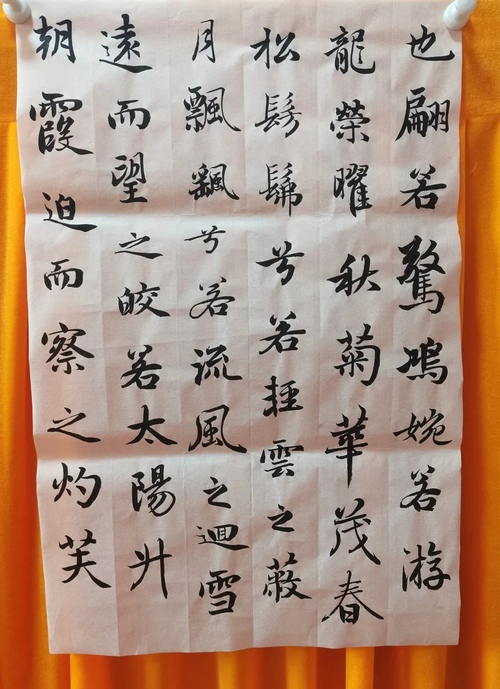 也翩若驚鴻婉若游
龍榮曜秋菊華茂春
松髣髴兮若輕雲之蔽
月飄飖兮若流風之迴雪
遠而望之皎若太陽升
朝霞迫而察之灼芙